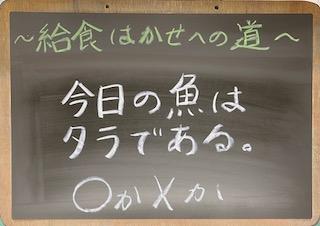 ~給食はかせへの道~
今日の魚は
タラである。
○か×か